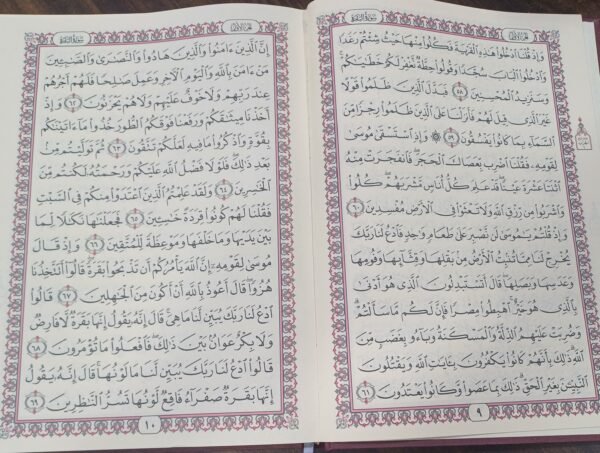 سُورَةُ البَقَرَةِ
الجُزْءُ الأَوَّلُ
وَإِذْ قُلْنَا ٱدْخُلُوا۟ هَٰذِهِ ٱلْقَرْيَةَ فَكُلُوا۟ مِنْهَا حَيْثُ شِئْتُمْ رَغَدًا
وَٱدْخُلُوا۟ ٱلْبَابَ سُجَّدًا وَقُولُوا۟ حِطَّةٌ نَّغْفِرْ لَكُمْ خَطَٰيَٰكُمْ
وَسَنَزِيدُ ٱلْمُحْسِنِينَ ٥٨ فَبَدَّلَ ٱلَّذِينَ ظَلَمُوا۟ قَوْلًا
غَيْرَ ٱلَّذِى قِيلَ لَهُمْ فَأَنزَلْنَا عَلَى ٱلَّذِينَ ظَلَمُوا۟ رِجْزًا مِّنَ
ٱلسَّمَآءِ بِمَا كَانُوا۟ يَفْسُقُونَ ٥٩ ۞ وَإِذِ ٱسْتَسْقَىٰ مُوسَىٰ
لِقَوْمِهِۦ فَقُلْنَا ٱضْرِب بِّعَصَاكَ ٱلْحَجَرَ فَٱنفَجَرَتْ مِنْهُ
ٱثْنَتَا عَشْرَةَ عَيْنًا قَدْ عَلِمَ كُلُّ أُنَاسٍ مَّشْرَبَهُمْ كُلُوا۟
وَٱشْرَبُوا۟ مِن رِّزْقِ ٱللَّهِ وَلَا تَعْثَوْا۟ فِى ٱلْأَرْضِ مُفْسِدِينَ ٦٠
وَإِذْ قُلْتُمْ يَٰمُوسَىٰ لَن نَّصْبِرَ عَلَىٰ طَعَامٍ وَٰحِدٍ فَٱدْعُ لَنَا رَبَّكَ
يُخْرِجْ لَنَا مِمَّا تُنۢبِتُ ٱلْأَرْضُ مِنۢ بَقْلِهَا وَقِثَّآئِهَا وَفُومِهَا
وَعَدَسِهَا وَبَصَلِهَا قَالَ أَتَسْتَبْدِلُونَ ٱلَّذِى هُوَ أَدْنَىٰ
بِٱلَّذِى هُوَ خَيْرٌ ٱهْبِطُوا۟ مِصْرًا فَإِنَّ لَكُم مَّا سَأَلْتُمْ
وَضُرِبَتْ عَلَيْهِمُ ٱلذِّلَّةُ وَٱلْمَسْكَنَةُ وَبَآءُو بِغَضَبٍ مِّنَ
ٱللَّهِ ذَٰلِكَ بِأَنَّهُمْ كَانُوا۟ يَكْفُرُونَ بِـَٔايَٰتِ ٱللَّهِ وَيَقْتُلُونَ
ٱلنَّبِيِّـۧنَ بِغَيْرِ ٱلْحَقِّ ذَٰلِكَ بِمَا عَصَوا۟ وَّكَانُوا۟ يَعْتَدُونَ ٦١
٩
الجُزْءُ الأَوَّلُ
سُورَةُ البَقَرَةِ
إِنَّ ٱلَّذِينَ ءَامَنُوا۟ وَٱلَّذِينَ هَادُوا۟ وَٱلنَّصَٰرَىٰ وَٱلصَّٰبِـِٔينَ
مَنْ ءَامَنَ بِٱللَّهِ وَٱلْيَوْمِ ٱلْءَاخِرِ وَعَمِلَ صَٰلِحًا فَلَهُمْ أَجْرُهُمْ
عِندَ رَبِّهِمْ وَلَا خَوْفٌ عَلَيْهِمْ وَلَا هُمْ يَحْزَنُونَ ٦٢ وَإِذْ
أَخَذْنَا مِيثَٰقَكُمْ وَرَفَعْنَا فَوْقَكُمُ ٱلطُّورَ خُذُوا۟ مَآ ءَاتَيْنَٰكُم
بِقُوَّةٍ وَٱذْكُرُوا۟ مَا فِيهِ لَعَلَّكُمْ تَتَّقُونَ ٦٣ ثُمَّ تَوَلَّيْتُم مِّنۢ
بَعْدِ ذَٰلِكَ فَلَوْلَا فَضْلُ ٱللَّهِ عَلَيْكُمْ وَرَحْمَتُهُۥ لَكُنتُم مِّنَ
ٱلْخَٰسِرِينَ ٦٤ وَلَقَدْ عَلِمْتُمُ ٱلَّذِينَ ٱعْتَدَوْا۟ مِنكُمْ فِى ٱلسَّبْتِ
فَقُلْنَا لَهُمْ كُونُوا۟ قِرَدَةً خَٰسِـِٔينَ ٦٥ فَجَعَلْنَٰهَا نَكَٰلًا لِّمَا
بَيْنَ يَدَيْهَا وَمَا خَلْفَهَا وَمَوْعِظَةً لِّلْمُتَّقِينَ ٦٦ وَإِذْ قَالَ
مُوسَىٰ لِقَوْمِهِۦٓ إِنَّ ٱللَّهَ يَأْمُرُكُمْ أَن تَذْبَحُوا۟ بَقَرَةً قَالُوٓا۟ أَتَتَّخِذُنَا
هُزُوًا قَالَ أَعُوذُ بِٱللَّهِ أَنْ أَكُونَ مِنَ ٱلْجَٰهِلِينَ ٦٧ قَالُوا۟
ٱدْعُ لَنَا رَبَّكَ يُبَيِّن لَّنَا مَا هِىَ قَالَ إِنَّهُۥ يَقُولُ إِنَّهَا بَقَرَةٌ لَّا فَارِضٌ
وَلَا بِكْرٌ عَوَانٌۢ بَيْنَ ذَٰلِكَ فَٱفْعَلُوا۟ مَا تُؤْمَرُونَ ٦٨
قَالُوا۟ ٱدْعُ لَنَا رَبَّكَ يُبَيِّن لَّنَا مَا لَوْنُهَا قَالَ إِنَّهُۥ يَقُولُ
إِنَّهَا بَقَرَةٌ صَفْرَآءُ فَاقِعٌ لَّوْنُهَا تَسُرُّ ٱلنَّٰظِرِينَ ٦٩
١٠